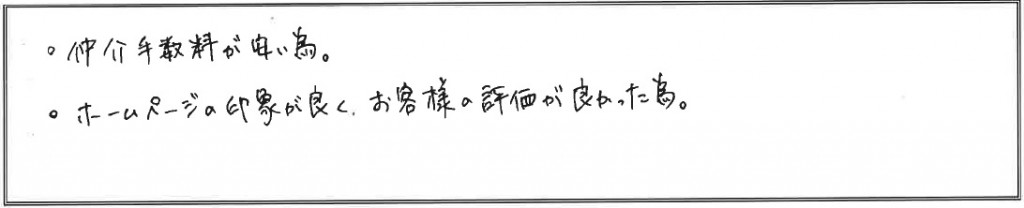 。仲介手数料が安い為。
。ホームページの印象が良く、お客様の評価が良かった為。